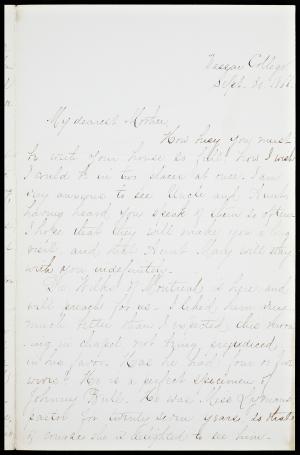 Vassar College
Sept. 30.
My dearest Mother,
How busy you must
be with your house so full how I wish
I could be in two places at once. I am
very anxious to see Uncle and Aunt,
having heard you speak of them so often
I hope that they will make you a long
visit, and that Aunt Mary will stay
with you indefinitely.
Dr. Wilkes of Montreal is here and
will preach for us. I liked him very
much better than I expected, this morn-
ing in chapel not being prejudiced
in his favor. Has he had four or five
wives? He is a perfect specimen of
Johnny Bull. He was Miss Lyman's
pastor for twenty seven years so that
of course she is delighted to see him.